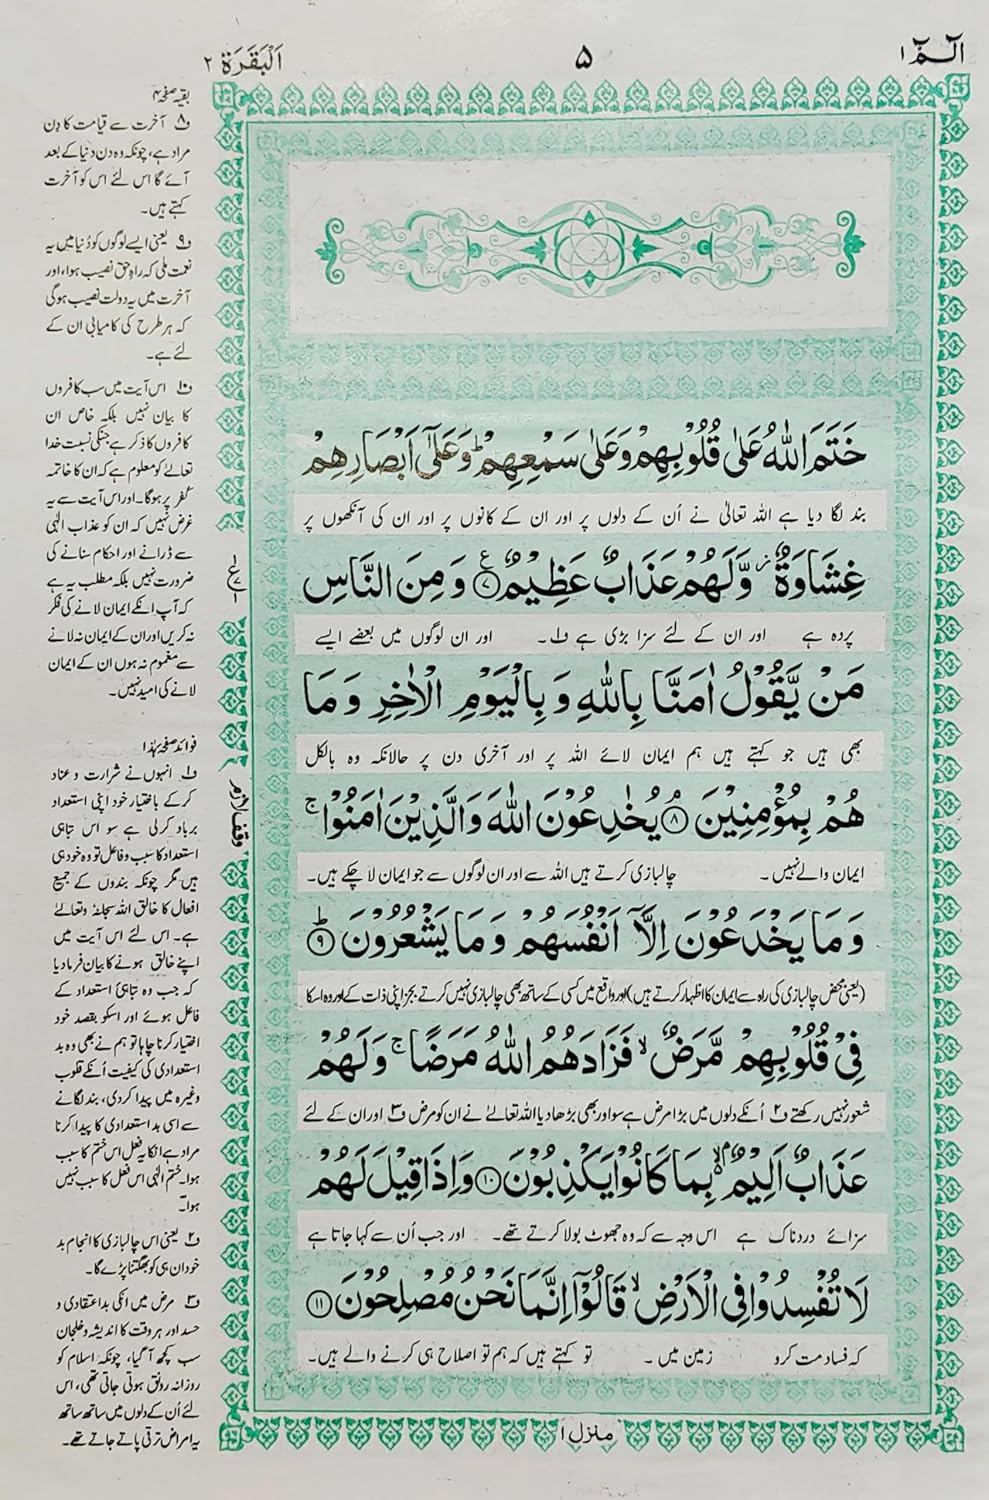 الٓمّٓ ١
۵
اَلْبَقَرَة ٢
خَتَمَ اللّٰهُ عَلٰى قُلُوْبِهِمْ وَعَلٰى سَمْعِهِمْ ؕ وَعَلٰۤى اَبْصَارِهِمْ
بند لگا دیا ہے اللہ تعالیٰ نے اُن کے دلوں پر اور ان کے کانوں پر اور ان کی آنکھوں پر
غِشَاوَةٌ ؗ وَّلَهُمْ عَذَابٌ عَظِيْمٌ ۧ ﴿٧﴾ وَ مِنَ النَّاسِ
پردہ ہے اور ان کے لئے سزا بڑی ہے ف۱۔ اور ان لوگوں میں بعضے ایسے
مَنْ يَّقُوْلُ اٰمَنَّا بِاللّٰهِ وَ بِالْيَوْمِ الْاٰخِرِ وَ مَا
بھی ہیں جو کہتے ہیں ہم ایمان لائے اللہ پر اور آخری دن پر حالانکہ وہ بالکل
هُمْ بِمُؤْمِنِيْنَ ۘ ﴿٨﴾ يُخٰدِعُوْنَ اللّٰهَ وَالَّذِيْنَ اٰمَنُوْا ۚ
ایمان والے نہیں۔ چالبازی کرتے ہیں اللہ سے اور ان لوگوں سے جو ایمان لا چکے ہیں۔
وَ مَا يَخْدَعُوْنَ اِلَّاۤ اَنْفُسَهُمْ وَ مَا يَشْعُرُوْنَ ؕ ﴿٩﴾
(یعنی محض چالبازی کی راہ سے ایمان کا اظہار کرتے ہیں) اور واقع میں کسی کے ساتھ بھی چالبازی نہیں کرتے بجز اپنی ذات کے اور وہ اسکا
فِيْ قُلُوْبِهِمْ مَّرَضٌ ۙ فَزَادَهُمُ اللّٰهُ مَرَضًا ۚ وَ لَهُمْ
شعور نہیں رکھتے ف۲ اُنکے دلوں میں بڑا مرض ہے سو اور بھی بڑھا دیا اللہ تعالےٰ نے ان کو مرض ف۳ اور ان کے لئے
عَذَابٌ اَلِيْمٌۢ ۙ۬ بِمَا كَانُوْا يَكْذِبُوْنَ ﴿١٠﴾ وَ اِذَا قِيْلَ لَهُمْ
سزائے دردناک ہے اس وجہ سے کہ وہ جھوٹ بولا کرتے تھے۔ اور جب اُن سے کہا جاتا ہے
لَا تُفْسِدُوْا فِي الْاَرْضِ ۙ قَالُوْۤا اِنَّمَا نَحْنُ مُصْلِحُوْنَ ﴿١١﴾
کہ فساد مت کرو زمین میں۔ تو کہتے ہیں کہ ہم تو اصلاح ہی کرنے والے ہیں۔
منزل ١
وقف لازم
بقیہ صفحہ ۴
ف۸ آخرت سے قیامت کا دن
مراد ہے، چونکہ وہ دن دنیا کے بعد
آئے گا اس لئے اس کو آخرت
کہتے ہیں۔
ف۹ یعنی ایسے لوگوں کو دُنیا میں یہ
نعمت ملی کہ راہِ حق نصیب ہوا، اور
آخرت میں یہ دولت نصیب ہوگی
کہ ہر طرح کی کامیابی ان کے
لئے ہے۔
ف۱۰ اس آیت میں سب کافروں
کا بیان نہیں بلکہ خاص ان
کافروں کا ذکر ہے جنکی نسبت خدا
تعالےٰ کو معلوم ہے کہ ان کا خاتمہ
کفر پر ہوگا۔ اور اس آیت سے یہ
غرض نہیں کہ ان کو عذاب الٰہی
سے ڈرانے اور احکام سنانے کی
ضرورت نہیں بلکہ مطلب یہ ہے
کہ آپ انکے ایمان لانے کی فکر
نہ کریں اور ان کے ایمان نہ لانے
سے مغموم نہ ہوں ان کے ایمان
لانے کی امید نہیں۔
فوائد صفحہ ہٰذا
ف۱ انہوں نے شرارت و عناد
کرکے باختیار خود اپنی استعداد
برباد کرلی ہے سو اس تباہی
استعداد کا سبب و فاعل تو وہ خود ہی
ہیں مگر چونکہ بندوں کے جمیع
افعال کا خالق اللہ سبحانہٗ وتعالےٰ
ہے۔ اس لئے اس آیت میں
اپنے خالق ہونے کا بیان فرما دیا
کہ جب وہ تباہیٔ استعداد کے
فاعل ہوئے اور اسکو بقصد خود
اختیار کرنا چاہا تو ہم نے بھی وہ بد
استعدادی کی کیفیت اُنکے قلوب
وغیرہ میں پیدا کردی، بند لگانے
سے اسی بد استعدادی کا پیدا کرنا
مراد ہے انکا یہ فعل اس ختم کا سبب
ہوا۔ ختم الٰہی اس فعل کا سبب نہیں
ہوا۔
ف۲ یعنی اس چالبازی کا انجام بد
خود ان ہی کو بھگتنا پڑے گا۔
ف۳ مرض میں انکی بد اعتقادی و
حسد اور ہر وقت کا اندیشہ و خلجان
سب کچھ آگیا، چونکہ اسلام کو
روزانہ رونق ہوتی جاتی تھی، اس
لئے اُن کے دلوں میں ساتھ ساتھ
یہ امراض ترقی پاتے جاتے تھے۔